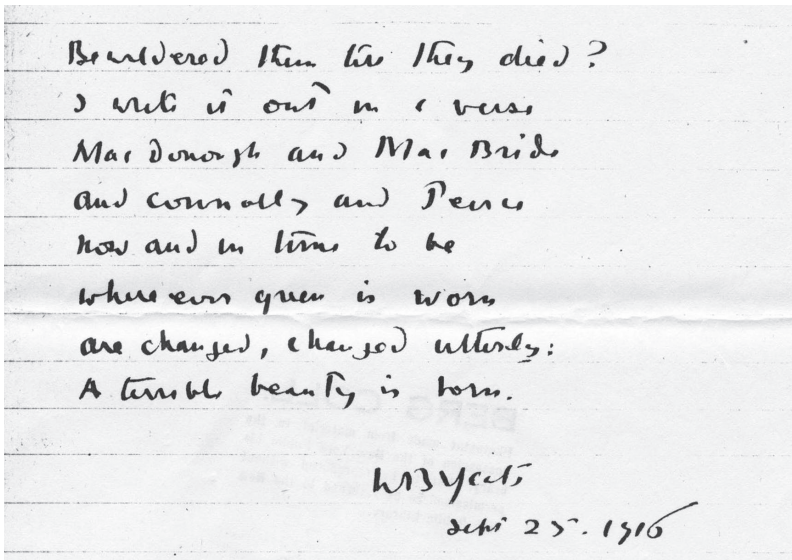 Bewildered them till they died?
I write it out in a verse
Mac Donough and Mac Bride
and Connolly and Pearse
now and in time to be
where ever green is worn
are changed, changed utterly:
A terrible beauty is born.
BERG COLL
WBYeats
Sept 25. 1916